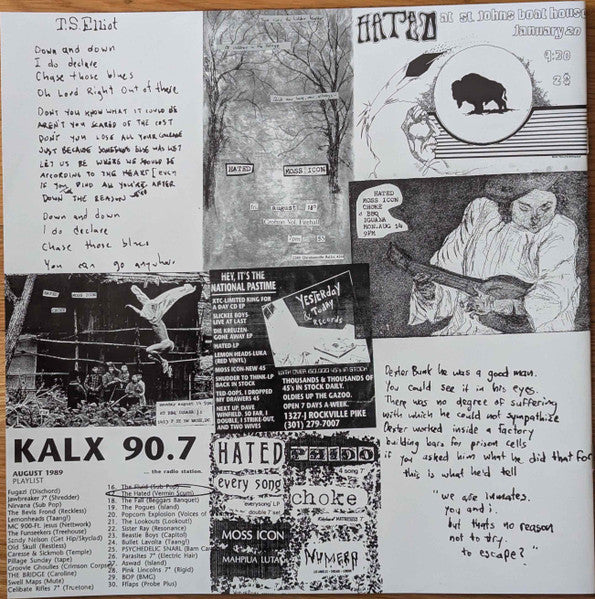 T.S. Elliot
Down and down
I do declare
Chase those blues
Oh Lord Right Out of there
DON'T YOU KNOW WHAT IT COULD BE
AREN'T YOU SCARED OF THE COST
DON'T YOU LOSE ALL YOUR COURAGE
JUST BECAUSE SOMETHING ELSE WAS LOST
LET US BE WHERE WE SHOULD BE
ACCORDING TO THE HEART (even
IF YOU FIND ALL YOU'RE AFTER
DOWN THE REASON
Down and down
I do declare
Chase those blues
You can go anywhere
HATED
MOSS ICON
august
HATED
at st. johns boat house
January 20
9:30
2$
HATED
MOSS ICON
CHOKE
@ BBQ
IGUANA
MON. AUG 14
9PM
HATED MOSS ICON
CHOKE
HEY, IT'S THE
NATIONAL PASTIME
XTC-LIMITED KING FOR
A DAY CD EP
SLICKEE BOYS-
LIVE AT LAST
DIE KREUZEN-
GONE AWAY EP
HATED-LP
LEMON HEADS-LUKA
(RED VINYL)
MOSS ICON-NEW 45
SHUDDER TO THINK-LP
BACK IN STOCK
TED-OOPS, I DROPPED
MY DRAWERS 45
NEXT UP, DAVE
WINFIELD, 50 EAR, I
DOUBLE, I STRIKE-OUT,
AND TWO WIVES
YESTERDAY
& TODAY
RECORDS
WITH OVER 60,000 45's IN STOCK
THOUSANDS & THOUSANDS OF
45'S IN STOCK DAILY.
OLDIES UP THE GAZOO.
OPEN 7 DAYS A WEEK.
1327-J ROCKVILLE PIKE
(301) 279-7007
KALX 90.7
AUGUST 1989
... the radio station.
PLAYLIST
Fugazi (Dischord)
Jawbreaker 7" (Shredder)
Nirvana (Sub Pop)
The Bevis Frond (Reckless)
Lemonheads (Taang!)
MC 900-Ft. Jesus (Nettwerk)
The Funseekers (Treehouse)
Sandy Nelson (Get Hip/Skyclad)
Old Skull (Restless)
Caresse & Sickmob (Temple)
Pillage Sunday (tape)
Groovie Ghoulies (Crimson Corpse)
THE BRIDGE (Caroline)
Swell Maps (Mute)
Celibate Rifles 7" (Truetone)
16. The Fluid (Sub Pop)
17. The Hated (Vermin Scum)
18. The Fall (Beggars Banquet)
19. The Pogues (Island)
20. Popcorn Explosion (Voices of
21. The Lookouts (Lookout!)
22. Sister Ray (Resonance)
23. Beastie Boys (Capitol)
24. Bullet Lavolta (Taang!)
25. PSYCHEDELIC SNARL (Bam Car
26. Parasites 7" (Electric Hair)
27. Aswad (Island)
28. Pink Lincolns 7" (Rigid)
29. BOP (BMG)
30. Fflaps (Probe Plus)
HATED
every song
everysong LP
double 7 set
MOSS ICON
MAHPIUA LUTA
4 song 7
choke
NUMERO
Dexter Bunk he was a good man.
You could see it in his eyes.
There was no degree of suffering
with which he could not sympathize
Dexter worked inside a factory
building bars for prison cells
if you asked him what he did that for
this is what he'd tell
"we are inmates.
you and i.
but thats no reason
not to try.
to escape?"